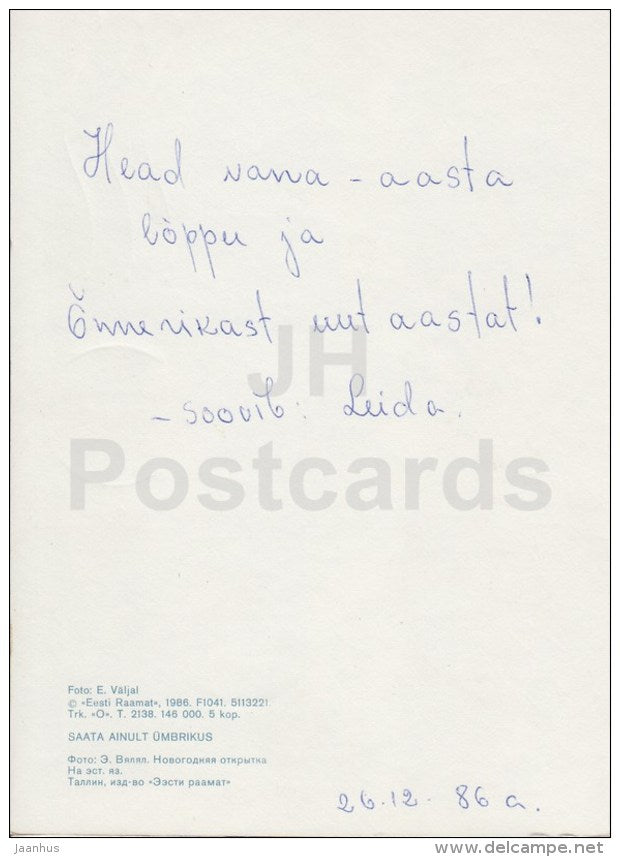 Head vana - aasta
lõppu ja
Õnnerikast uut aastat!
- soovib: Leida.
JH
Postcards
Foto: E. Väljal
© «Eesti Raamat», 1986. F1041. 5113221
Trk. «O». T. 2138. 146 000. 5 kop.
SAATA AINULT ÜMBRIKUS
Фото: Э. Вялял. Новогодняя открытка
На эст. яз.
Таллин, изд-во «Ээсти раамат»
26.12. 86 a.
jaanhus
delcampe.net